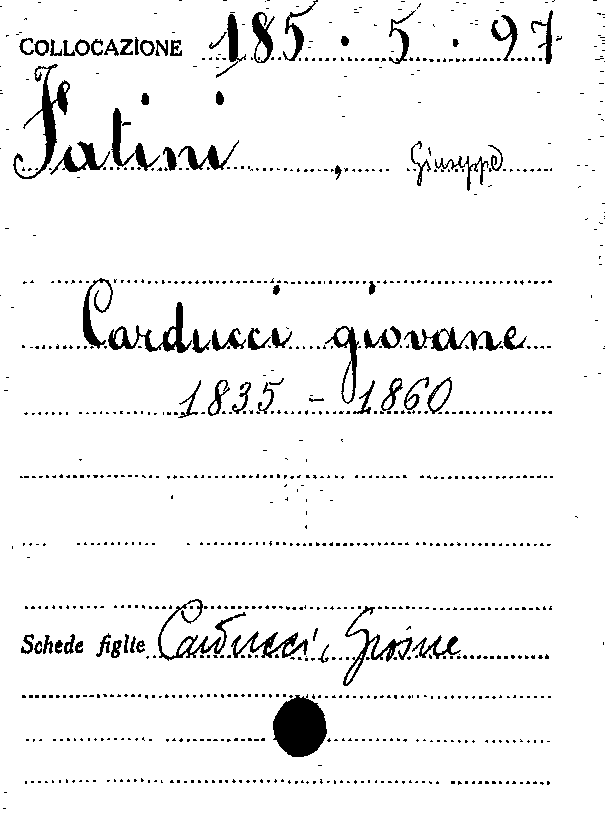 COLLOCAZIONE 185 . 5 . 97
Fatini , Giuseppe
Carducci giovane
1835 - 1860
Schede figlie Carducci, Giosue